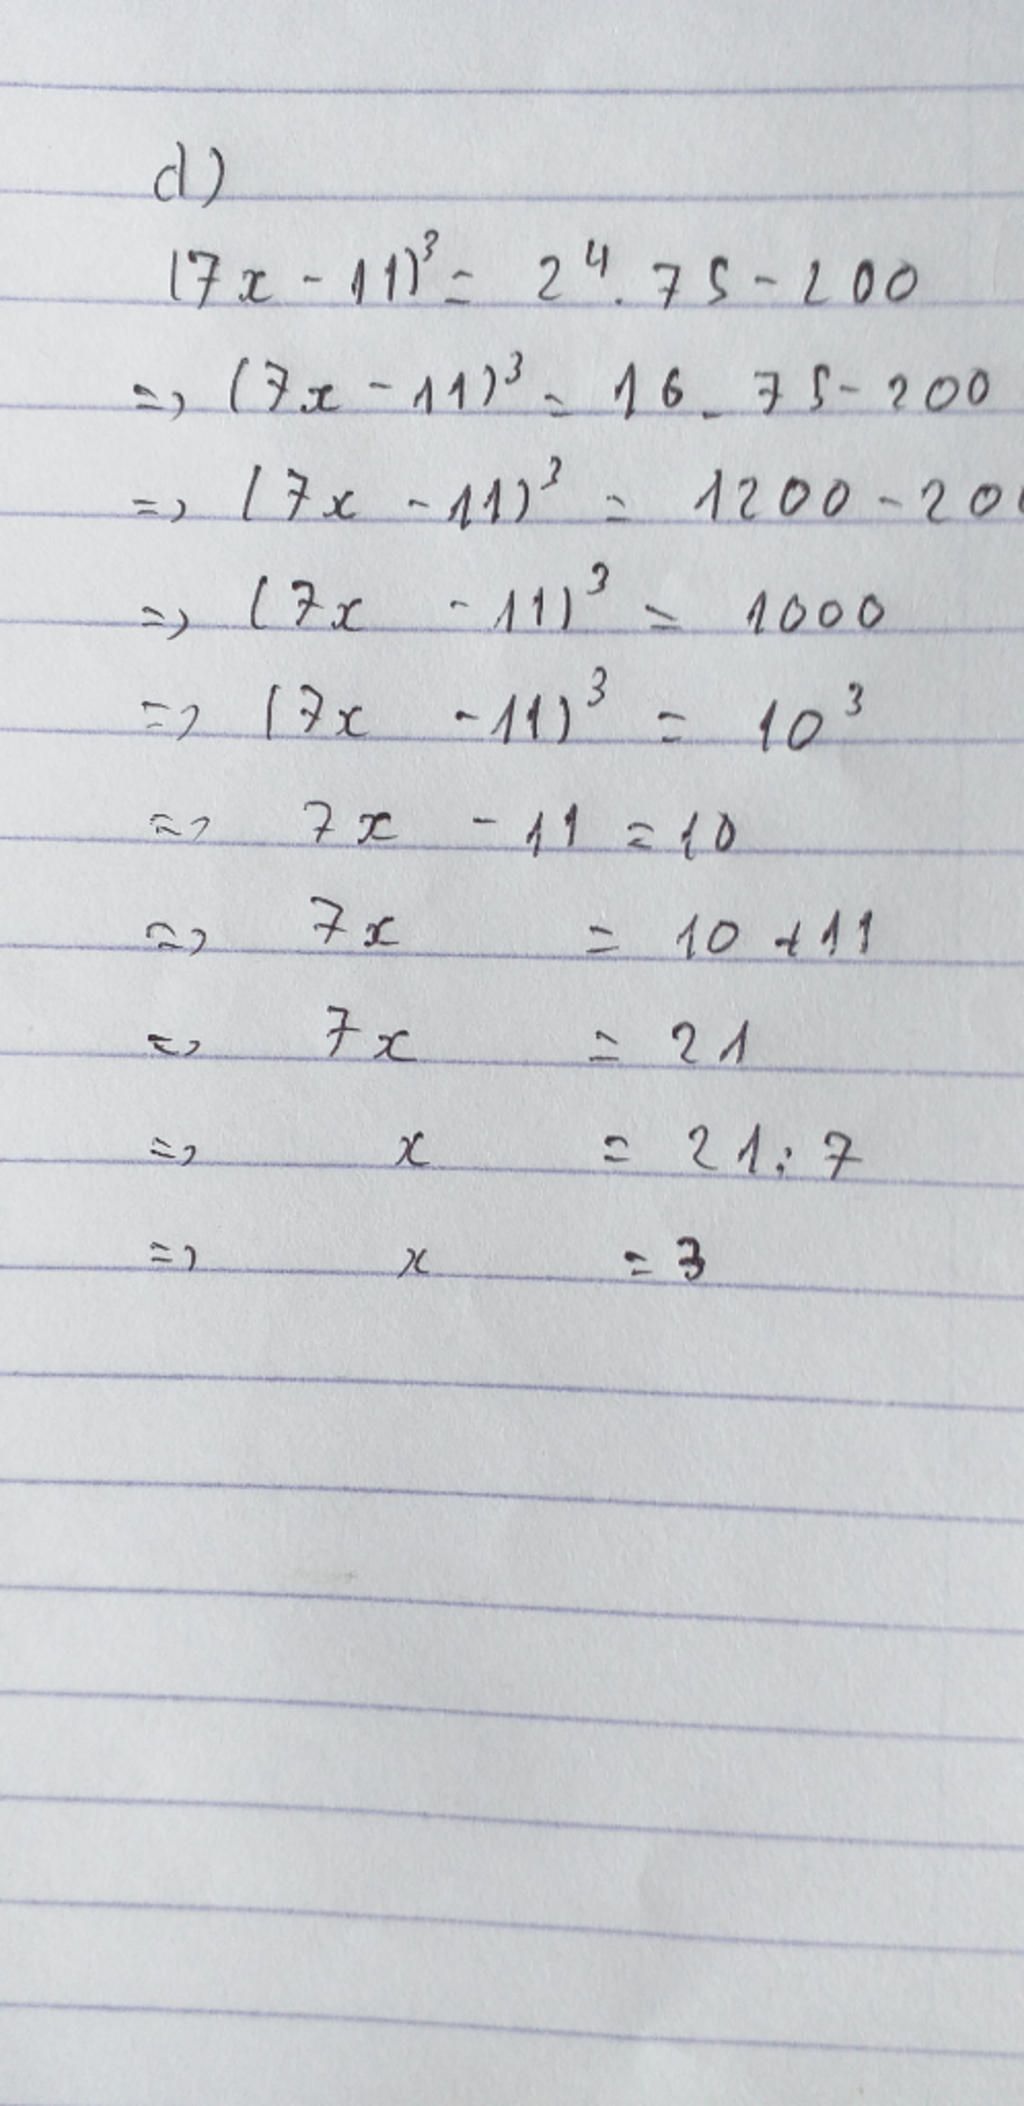 d)
(7x - 11)³ = 2⁴. 75 - 200
=> (7x - 11)³ = 16 . 75 - 200
=> (7x - 11)³ = 1200 - 200
=> (7x - 11)³ = 1000
=> (7x - 11)³ = 10³
=> 7x - 11 = 10
=> 7x = 10 + 11
=> 7x = 21
=> x = 21 : 7
=> x = 3